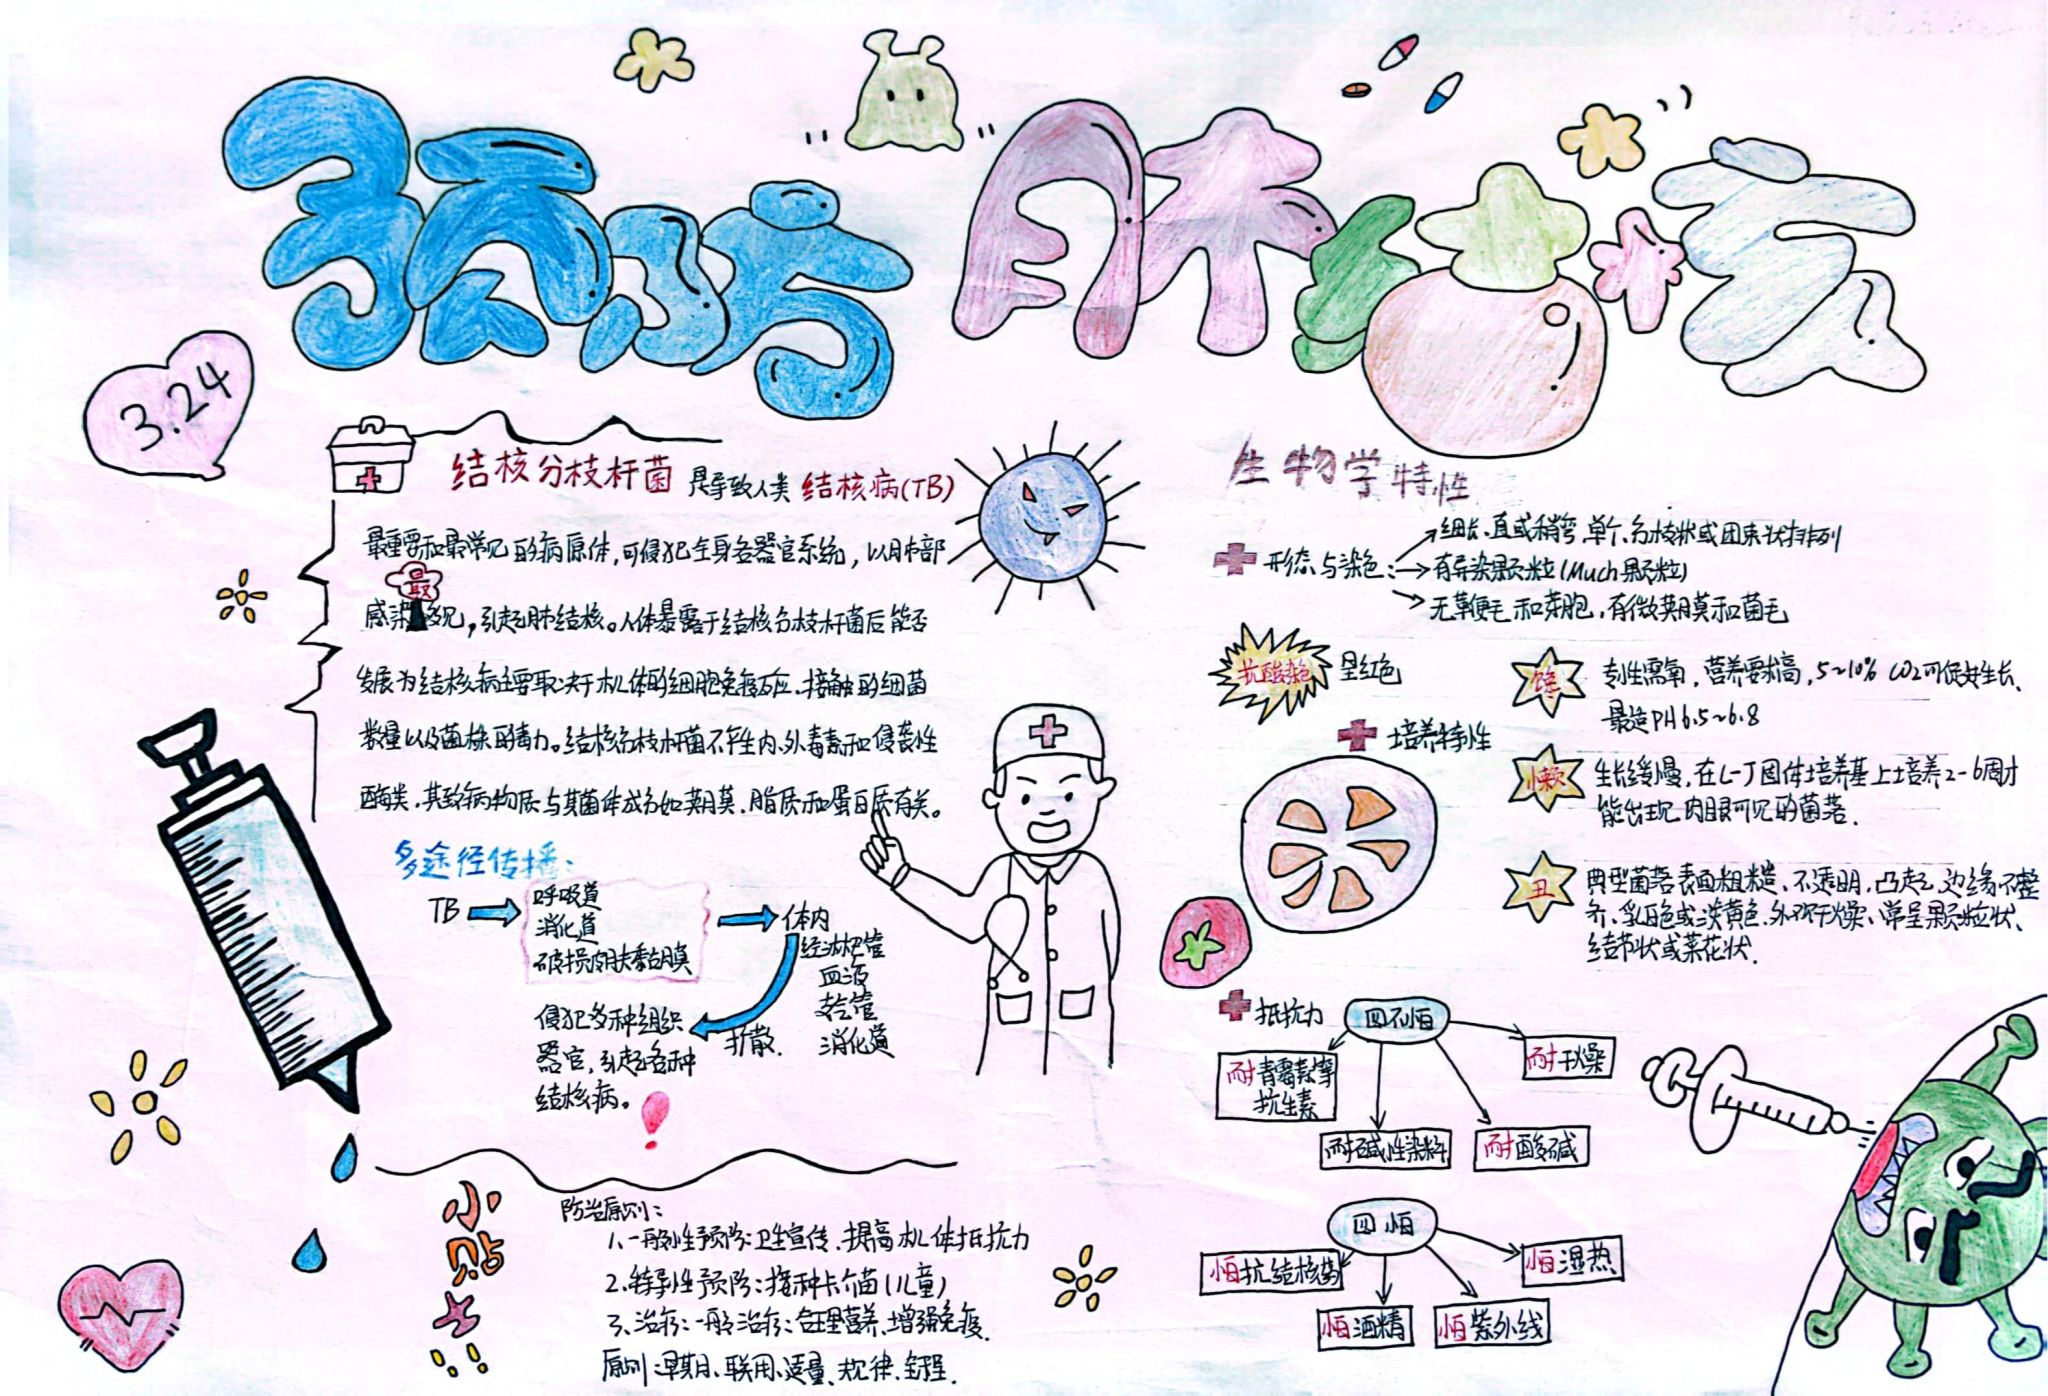 预防肺结核
3.24
结核分枝杆菌 是导致人类 结核病(TB)
最重要和最常见的病原体,可侵犯全身各器官系统,以肺部
感染最多见,引起肺结核。人体暴露于结核分枝杆菌后能否
发展为结核病主要取决于机体的细胞免疫反应、接触的细菌
数量以及菌株的毒力。结核分枝杆菌不产生内、外毒素和侵袭性
酶类,其致病物质与其菌体成分如荚膜、脂质和蛋白质有关。
多途径传播:
TB
呼吸道
消化道
破损皮肤黏膜
体内
经淋巴管
血液
支气管
消化道
扩散.
侵犯多种组织
器官,引起各种
结核病。
小贴士
防治原则:
1、一般性预防:卫生宣传、提高机体抵抗力
2.特异性预防:接种卡介苗(儿童)
3、治疗:一般治疗:合理营养、增强免疫.
原则:早期、联用、适量、规律、全程.
生物学特性
形态与染色:
细长、直或稍弯,单个、分枝状或团束状排列
有异染颗粒(Much颗粒)
无鞭毛和芽胞,有微荚膜和菌毛
抗酸染色 呈红色
培养特性
馋 专性需氧,营养要求高,5~10% CO2可促好生长、
最适PH6.5~6.8
懒 生长缓慢,在L-J固体培养基上培养2-6周才
能出现肉眼可见的菌落.
丑 典型菌落表面粗糙、不透明,凸起,边缘不整
齐、乳白色或淡黄色、外观干燥、常呈颗粒状、
结节状或菜花状.
抵抗力
四不怕
耐青霉素等
抗生素
耐碱性染料
耐酸碱
耐干燥
四怕
怕抗结核药
怕酒精
怕紫外线
怕湿热